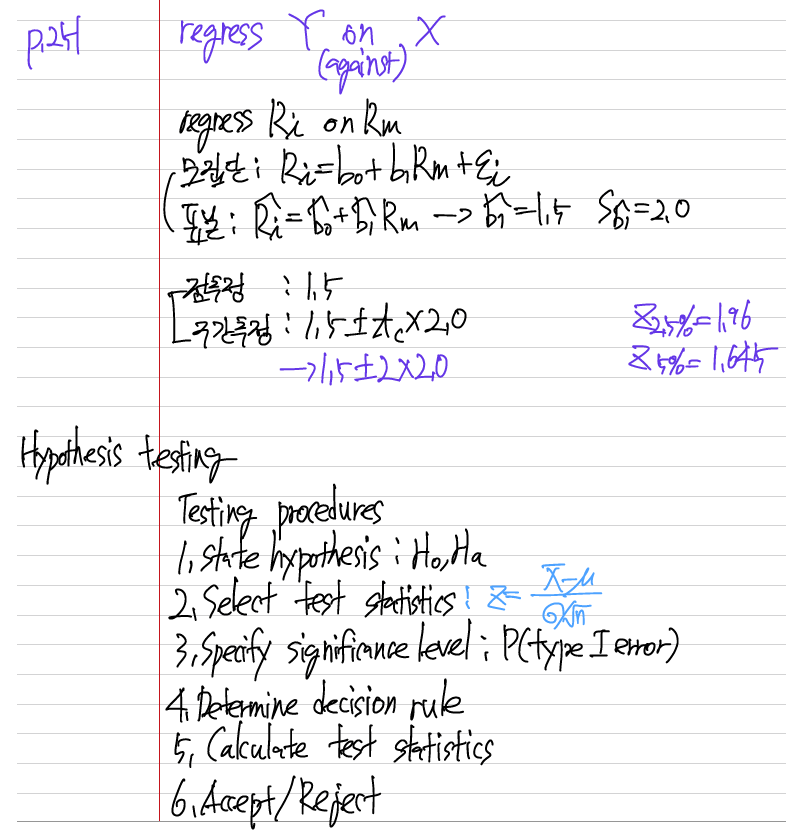 p.254
regress Y on X
(against)
regress Ri on Rm
모집단 : Ri = b0 + b1Rm + εi
표본 : R̂i = b̂0 + b̂1Rm → b̂1 = 1.5 Sb̂1 = 2.0
점추정 : 1.5
구간추정 : 1.5 ± tc × 2.0
Z2.5% = 1.96
→ 1.5 ± 2 × 2.0
Z5% = 1.645
Hypothesis testing
Testing procedures
1. State hypothesis : Ho, Ha
2. Select test statistics : z = (x̄-μ)/(σ/√n)
3. Specify significance level : P(type I error)
4. Determine decision rule
5. Calculate test statistics
6. Accept/Reject